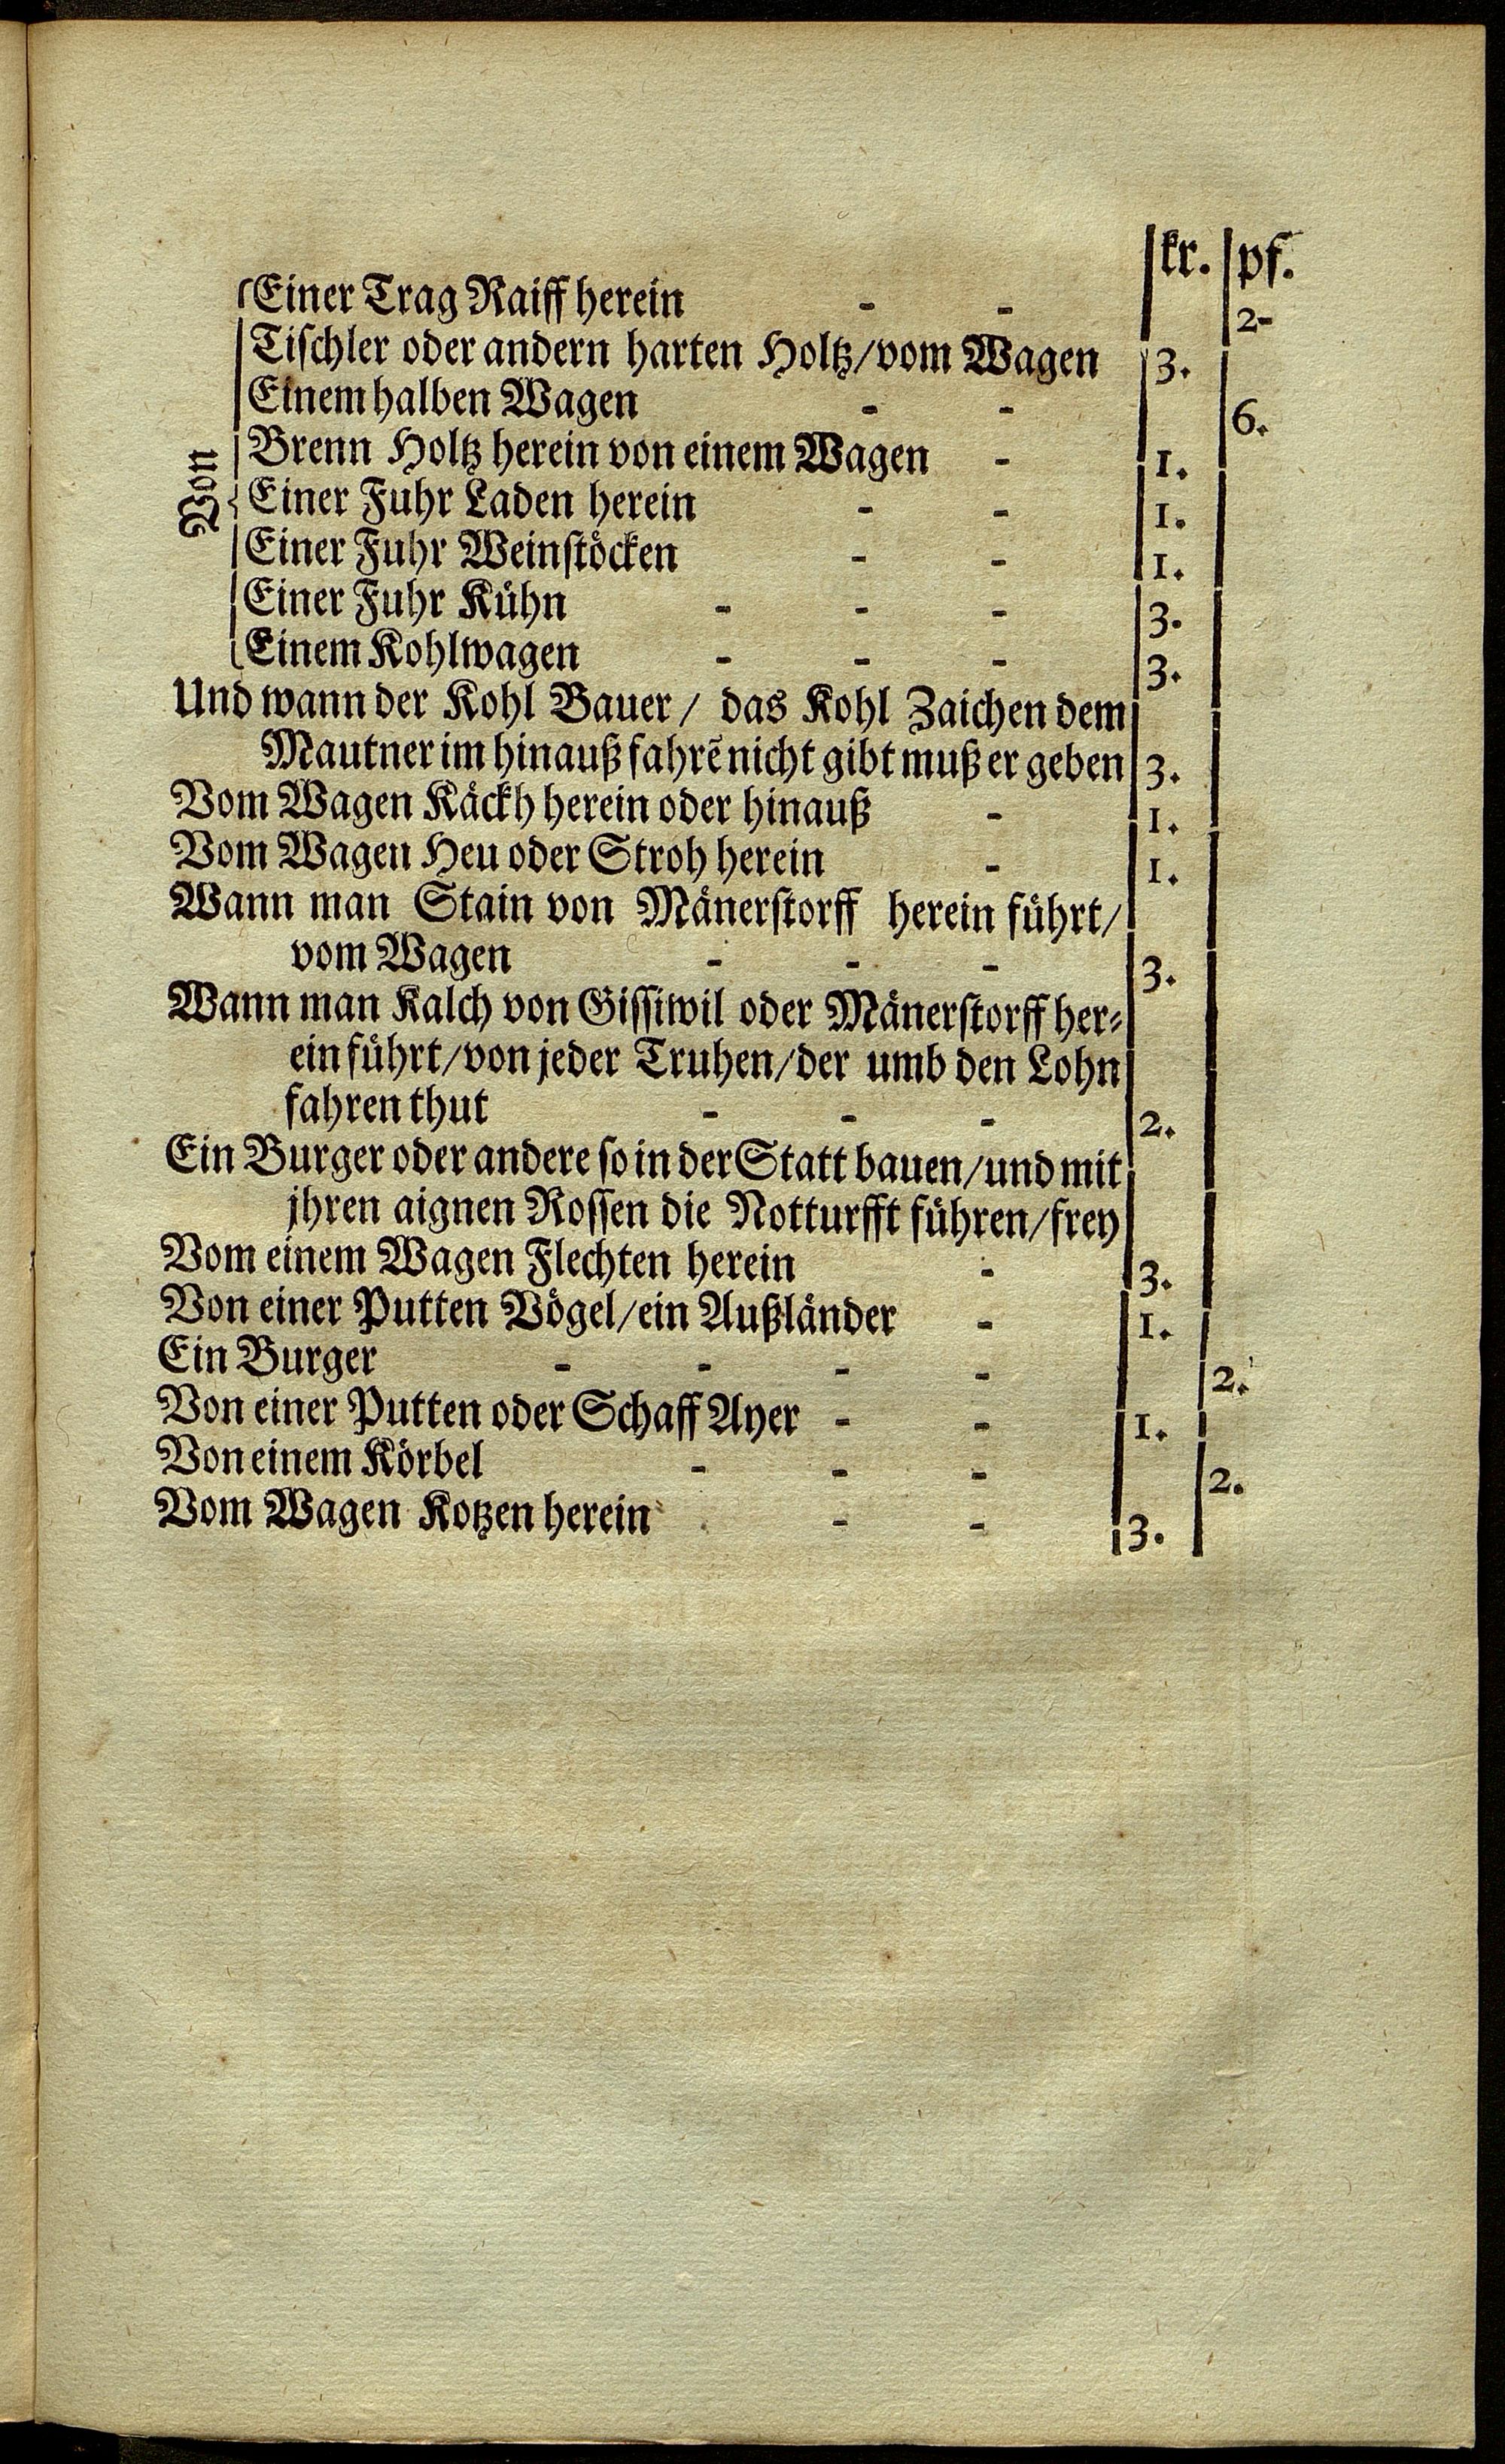 kr. pf.
Einer Trag Raiff herein - - 2-
Tischler oder andern harten Holtz/vom Wagen 3.
Einem halben Wagen - - 6.
Brenn Holtz herein von einem Wagen - 1.
Von
Einer Fuhr Laden herein - - 1.
Einer Fuhr Weinstöcken - - 1.
Einer Fuhr Kühn - - - 3.
Einem Kohlwagen - - - 3.
Und wann der Kohl Bauer / das Kohl Zaichen dem
Mautner im hinauß fahrẽ nicht gibt muß er geben 3.
Vom Wagen Käckh herein oder hinauß - 1.
Vom Wagen Heu oder Stroh herein - 1.
Wann man Stain von Mänerstorff herein führt/
vom Wagen - - - 3.
Wann man Kalch von Gissiwil oder Mänerstorff her-
ein führt/von jeder Truhen/der umb den Lohn
fahren thut - - - 2.
Ein Burger oder andere so in der Statt bauen/und mit
jhren aignen Rossen die Notturfft führen/frey
Vom einem Wagen Flechten herein - 3.
Von einer Putten Vögel/ein Außländer - 1.
Ein Burger - - - - 2.
Von einer Putten oder Schaff Ayer - - 1.
Von einem Körbel - - - 2.
Vom Wagen Kotzen herein - - 3.